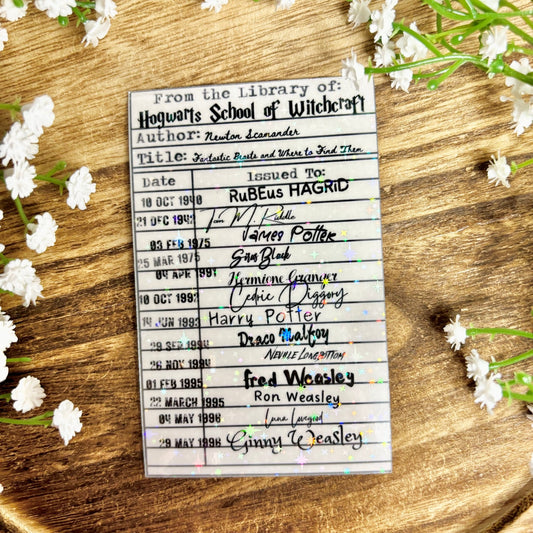 From the Library of:
Hogwarts School of Witchcraft
Author: Newton Scamander
Title: Fantastic Beasts and Where to Find Them
Date Issued To:
10 OCT 1940 RuBEus HAGRiD
21 DEC 1942 Tom M. Riddle
03 FEB 1975 James Potter
25 MAR 1975 Sirius Black
04 APR 1991 Hermione Granger
10 OCT 1992 Cedric Diggory
14 JUN 1993 Harry Potter
29 SEP 1994 Draco Malfoy
26 NOV 1994 Neville Longbottom
01 FEB 1995 Fred Weasley
22 MARCH 1995 Ron Weasley
04 MAY 1996 Luna Lovegood
29 MAY 1996 Ginny Weasley